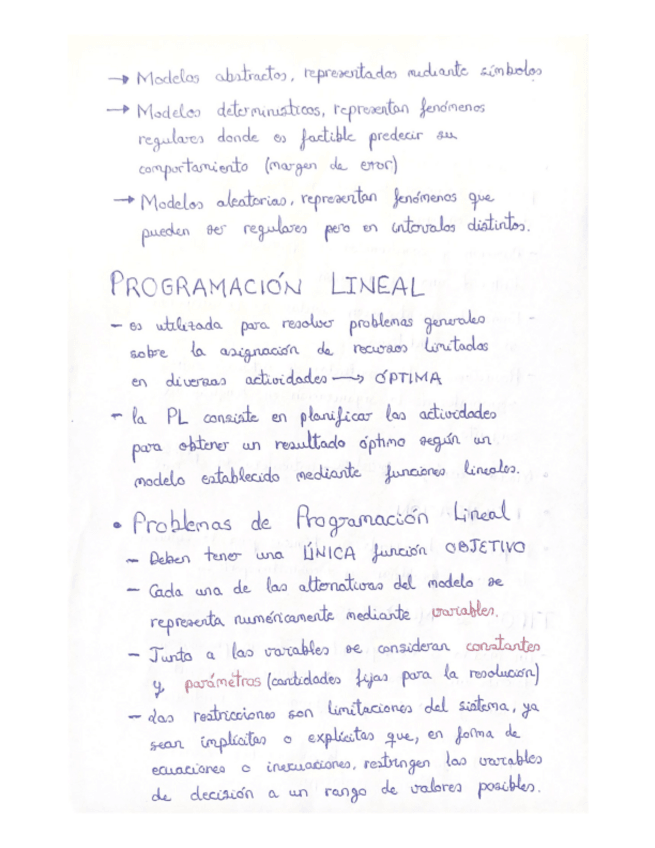 → Modelos abstractos, representados mediante símbolos
→ Modelos determinusticos, representan fenómenos
regulares donde es factible predecir su
comportamiento (margen de error)
→ Modelos aleatorias, representan fenómenos que
pueden ser regulares pero en intervalos distintos.
PROGRAMACIÓN LINEAL
- es utilizada para resolver problemas generales
sobre la asignación de recursos limitados
en diversas actividades → ÓPTIMA
- la PL consiste en planificar las actividades
para obtener un resultado óptimo según un
modelo establecido mediante funciones lineales.
• Problemas de Programación Lineal
- Deben tener una ÚNICA función OBJETIVO
- Cada una de las alternativas del modelo se
representa numéricamente mediante variables.
- Junto a las variables se consideran constantes
y parámetros (cantidades fijas para la resolución)
- Las restricciones son limitaciones del sistema, ya
sean implícitas o explícitas que, en forma de
ecuaciones o inecuaciones, restringen las variables
de decisión a un rango de valores posibles.